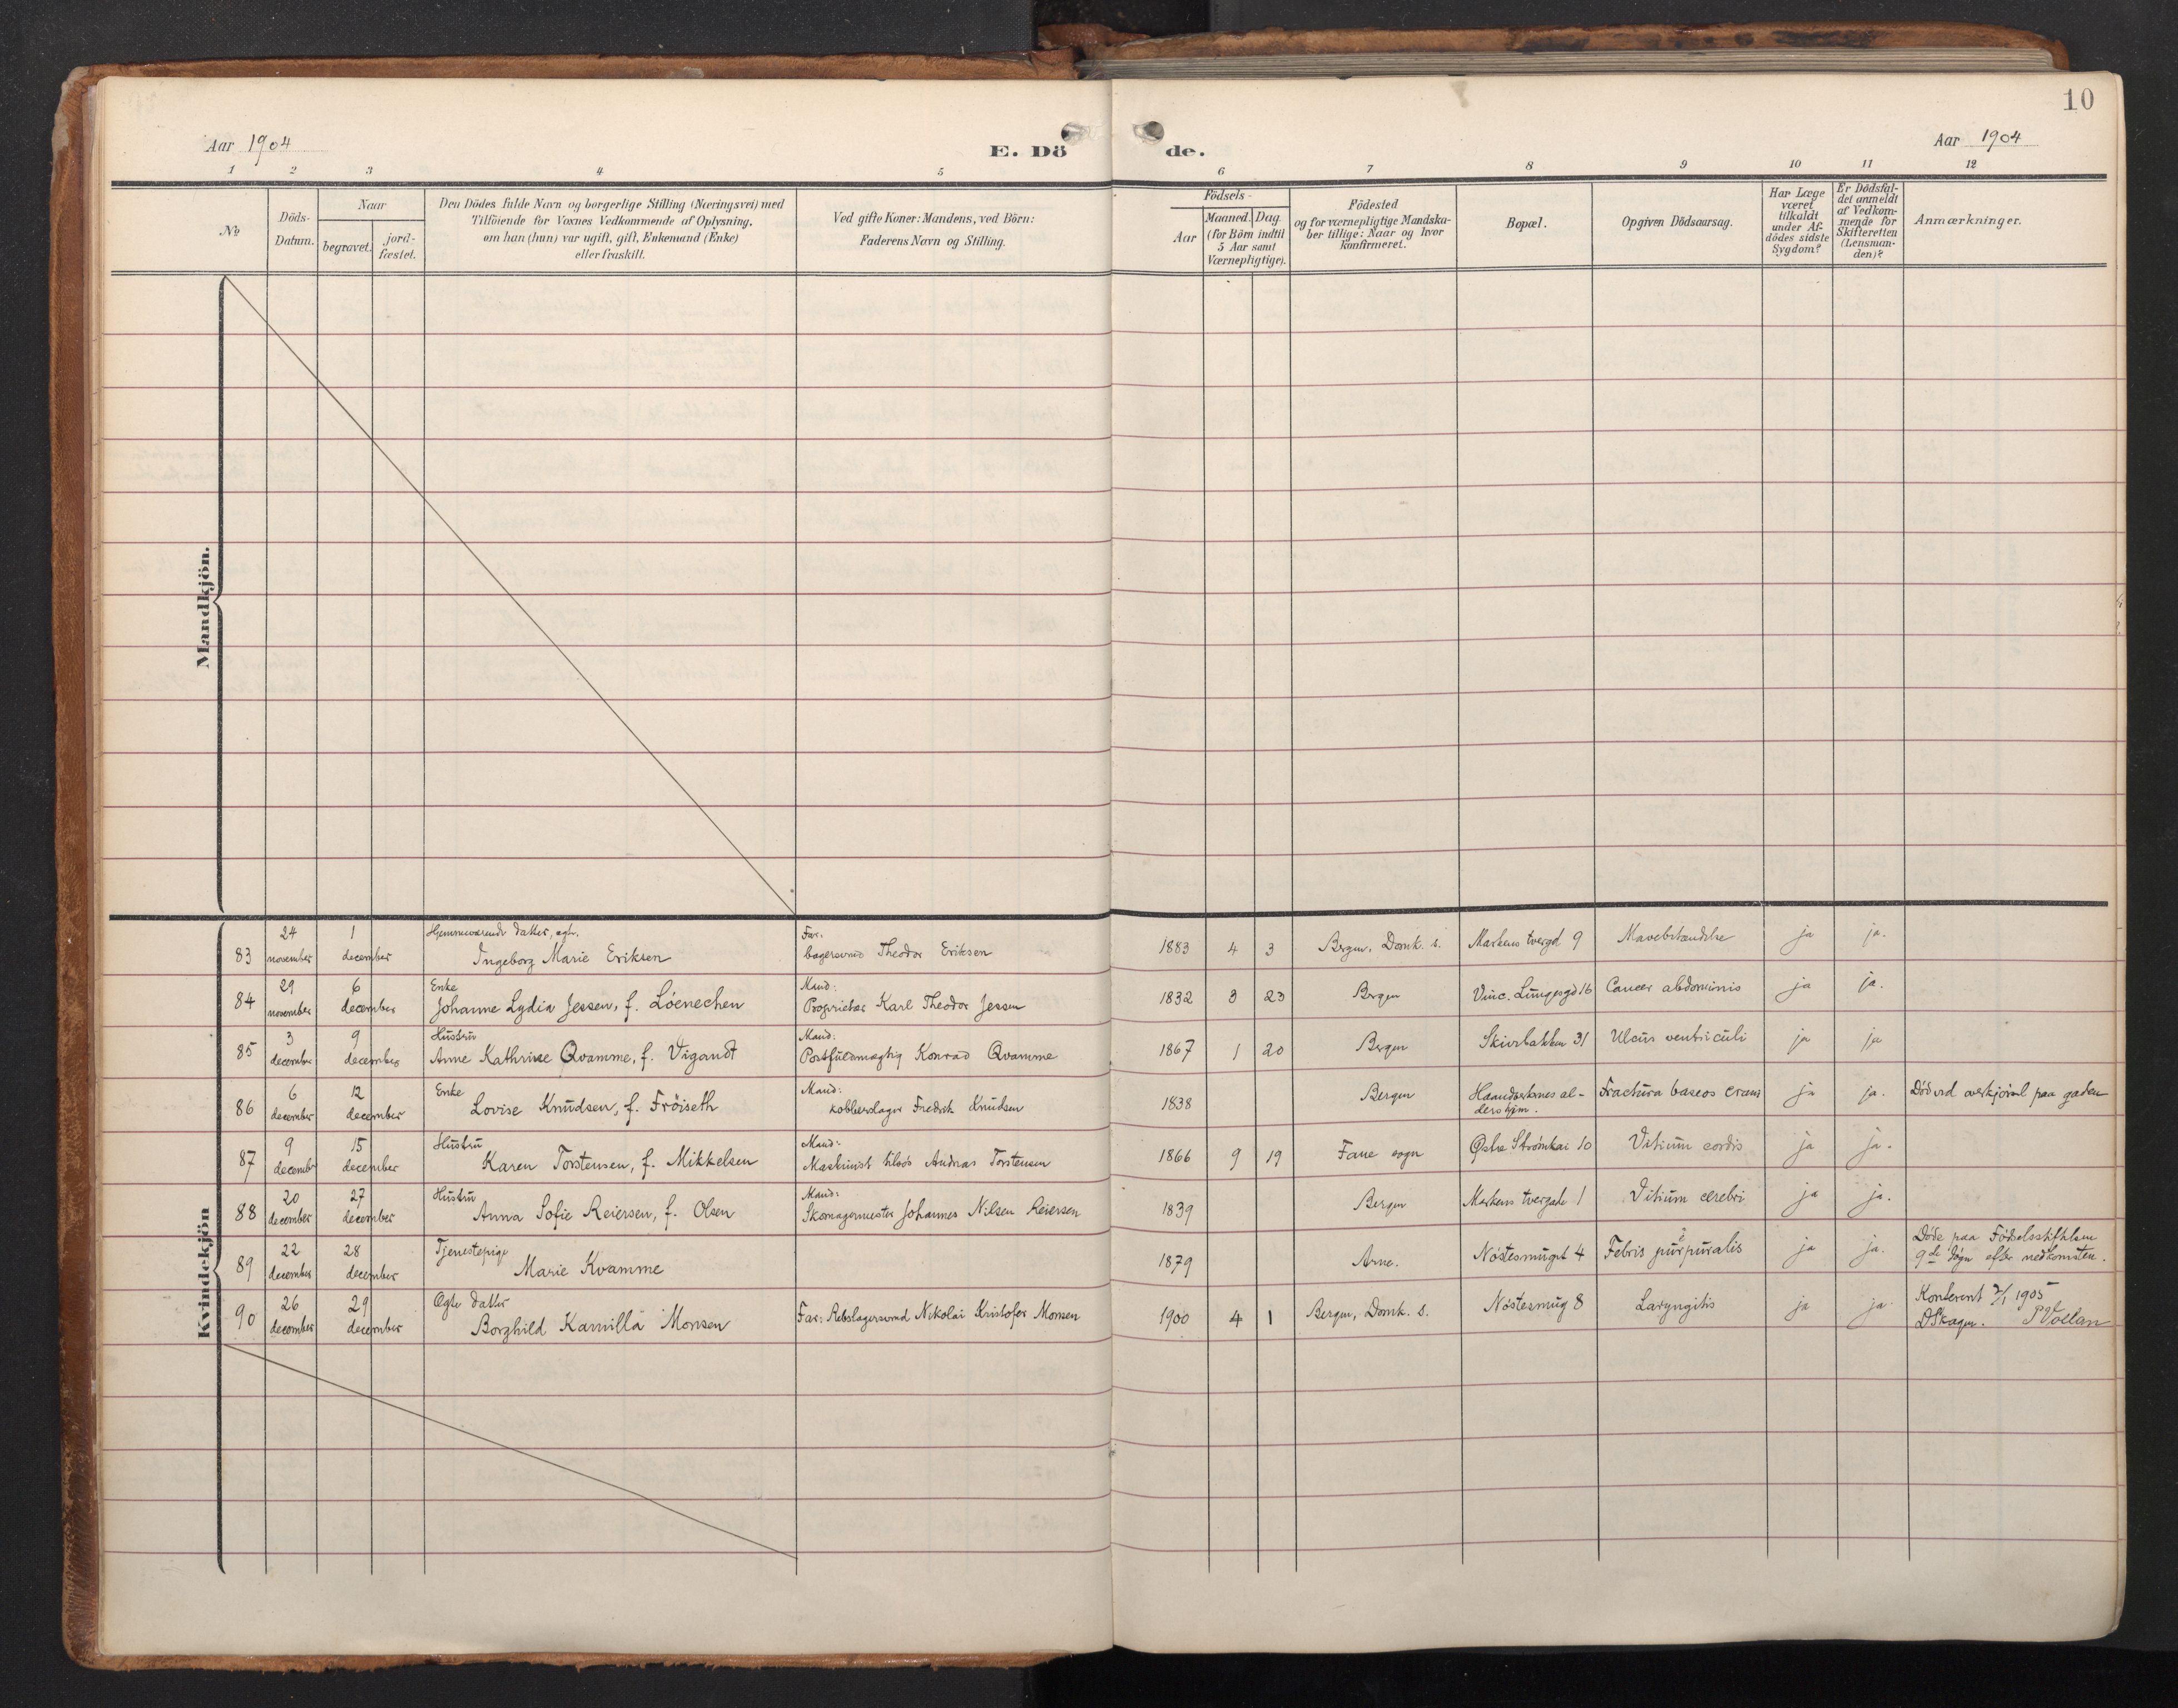 10
Aar 1904
E. Dö de.
Aar 1904
1 2 3 4 5 6 7 8 9 10 11 12
No
Döds-Datum.
Naar
begravet.
jord-fæstet.
Den Dödes fulde Navn og borgerlige Stilling (Næringsvei) med
Tilföiende for Voxnes Vedkommende af Oplysning.
om han (hun) var ugift, gift, Enkemand (Enke)
eller fraskilt.
Ved gifte Koner: Mandens, ved Börn:
Faderens Navn og Stilling.
Födsels-
Aar
Maaned. Dag
(for Börn indtil
5 Aar samt
Værnepligtige).
Födested
og for værnepligtige Mandska-
ber tillige: Naar og hvor
Konfirmeret.
Bopæl.
Opgiven Dödsaarsag.
Har Læge
været
tilkaldt
under Af-
dödes sidste
Sygdom?
Er Dödsfal-
det anmeldt
af Vedkom-
mende for
Skifteretten
(Lensman-
den)?
Anmærkninger.
Mandkjön.
Kvindekjön
83 24 november 1 december Hjemmeværende datter, ægte. Ingeborg Marie Eriksen Far: bagersvend Theodor Eriksen 1883 4 3 Bergen, Domk. s. Markens tvergd 9 Mavebetændelse ja ja.
84 29 november 6 december Enke Johanne Lydia Jessen, f. Lóenechen Mand: Proprietær Karl Theodor Jessen 1832 3 23 Bergen Vinc. Lungesgd 16 Cancer abdominis ja ja.
85 3 december 9 december Hustru Anne Kathrine Qvamme, f. Vigandt Mand: Postfuldmægtig Konrad Qvamme 1867 1 20 Bergen Skivebakken 31 Ulcus ventriculi ja ja
86 6 december 12 december Enke Lovise Knudsen, f. Fröiseth Mand: kobberslager Fredrik Knudsen 1838 Bergen Haandverkernes al-
dershjem. Fractura baseos cranii ja ja. Död ved overkjörsel paa gaden
87 9 december 15 december Hustru Karen Torstensen, f. Mikkelsen Mand: Maskinist tilsös Andreas Torstensen 1866 9 19 Fane sogn Østre Strömkai 10 Vitium cordis ja ja.
88 20 december 27 december Hustru Anna Sofie Reiersen, f. Olsen Mand: Skomagermester Johannes Nilsen Reiersen 1839 Bergen Markens tvergade 1 Vitium cerebri ja ja.
89 22 december 28 december Tjenestepige Marie Kvamme 1879 Arne. Nóstesmuget 4 Febris purpuralis ja ja. Döde paa Födselsstiftelsen
9de dögn efter nedkomsten.
90 26 december 29 december Ægte datter Borghild Kamilla Monsen Far: Rebslagersvend Nikolai Kristofer Monsen 1900 4 1 Bergen, Domk. s. Nóstesmug 8 Laryngitis ja ja. Konferent 2/1 1905
DSkagen. P Vollan